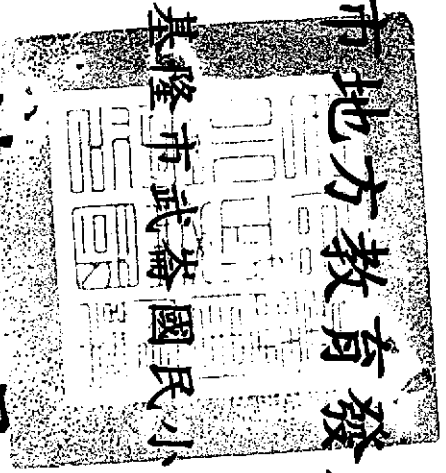 市地方教育發
基隆市武崙國民小